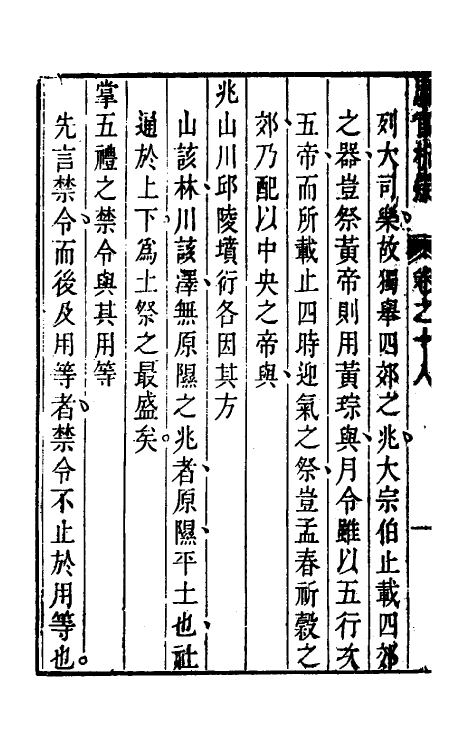 列大司樂故獨舉四郊之兆大宗伯止載四郊
之器豈祭黃帝則用黃琮與月令雖以五行次
五帝而所載止四時迎氣之祭豈孟春祈穀之
郊乃配以中央之帝與
兆山川邱陵墳衍各因其方
山該林川該澤無原隰之兆者原隰平土也社
通於上下爲土祭之最盛矣
掌五禮之禁令與其用等
先言禁令而後及用等者禁令不止於用等也